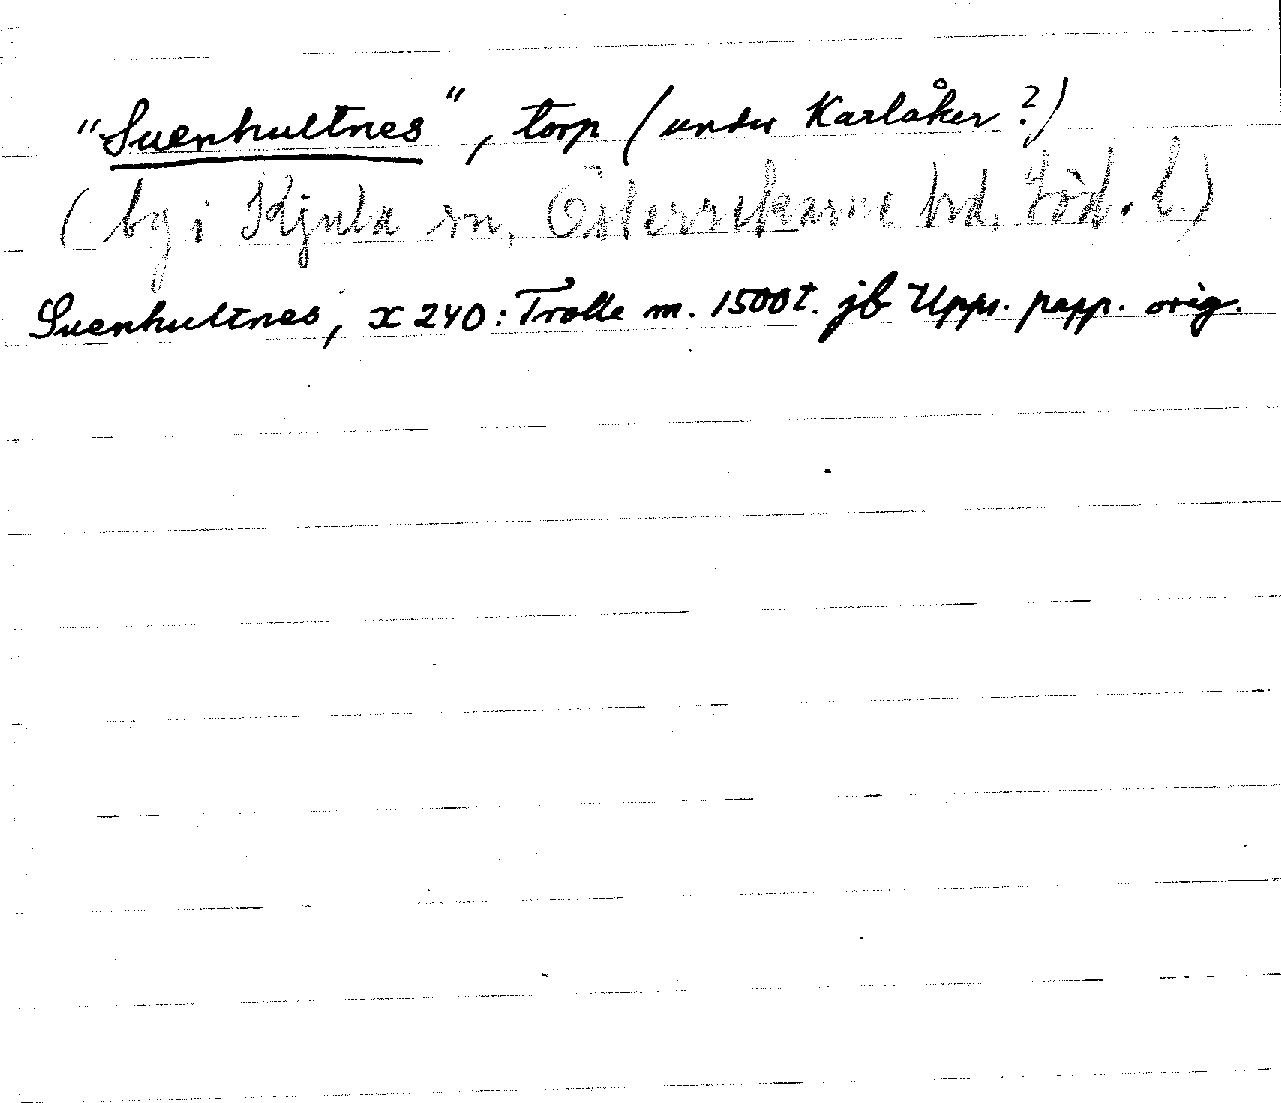 "Suenhultnes", torp (under Karlåker?)
(by i Kjula sn, Österrekarne hd, Söd. l.)
Suenhultnes, x 240: Trolle m. 1500t. jb Upps. papp. orig.